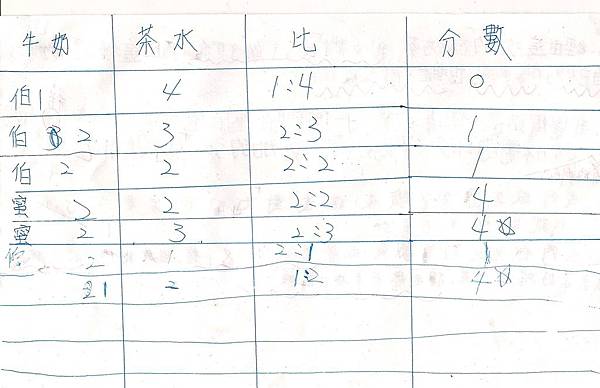 牛奶 茶水 比 分數
伯 1 4 1:4 0
伯 2 3 2:3 1
伯 2 2 2:2 1
蜜 2 2 2:2 4
蜜 2 3 2:3 4
2 1 2:1 1
1 2 1:2 4